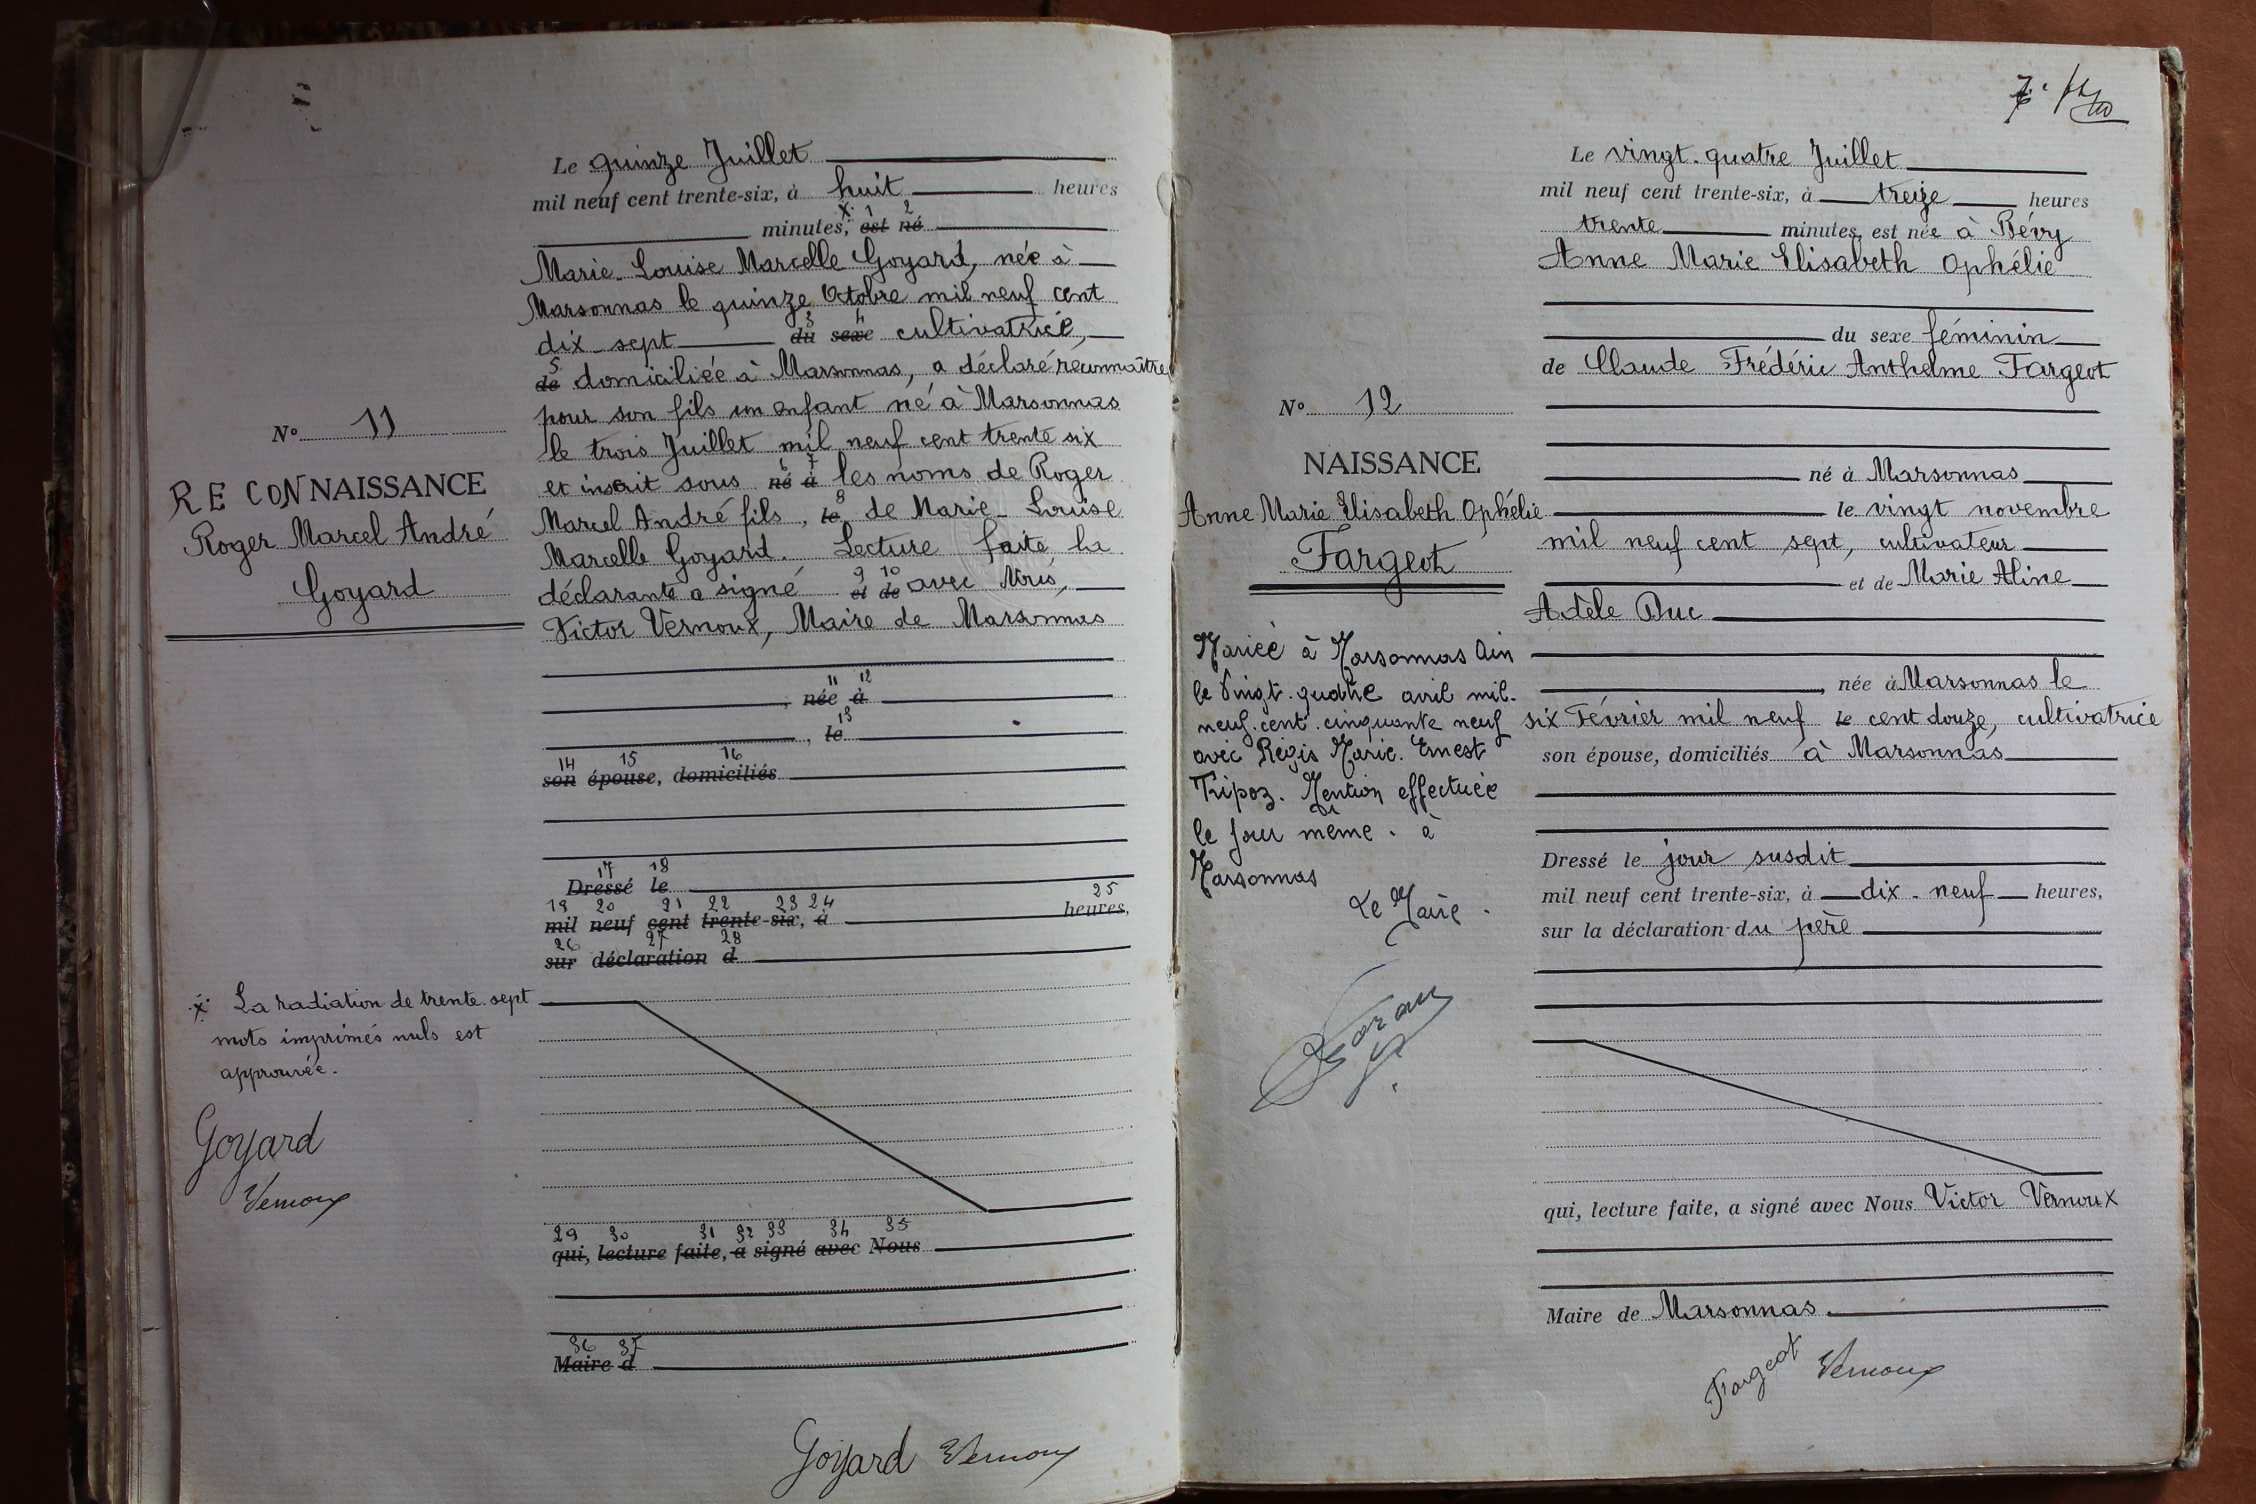 Le quinze Juillet
mil neuf cent trente-six, à huit heures
x 1 2
minutes, est né
Marie-Louise Marcelle Goyard, née à
Marsonnas le quinze Octobre mil neuf cent
3 4
dix-sept du sexe cultivatrice,
5
de domiciliée à Marsonnas, a déclaré reconnaître
pour son fils un enfant né à Marsonnas
le trois Juillet mil neuf cent trente six
6 7
et inscrit sous né à les noms de Roger
8
Marcel André fils, le de Marie-Louise
Marcelle Goyard. Lecture faite la
9 10
déclarante a signé et de avec Nous,
Victor Vernoux, Maire de Marsonnas
11 12
, née à
13
, le
14 15 16
son épouse, domiciliés
17 18
Dressé le
19 20 21 22 23 24 25
mil neuf cent trente-six, à heures,
26 27 28
sur déclaration d
29 30 31 32 33 34 35
qui, lecture faite, a signé avec Nous
36 37
Maire d
Goyard Vernoux
No 11
RECONNAISSANCE
Roger Marcel André
Goyard
x La radiation de trente-sept
mots imprimés nuls est
approuvée.
Goyard
Vernoux
Le vingt-quatre Juillet
mil neuf cent trente-six, à treize heures
trente minutes, est née à Bévy
Anne Marie Elisabeth Ophélie
du sexe féminin
de Claude Frédéric Anthelme Fargeot
né à Marsonnas
le vingt novembre
mil neuf cent sept, cultivateur
et de Marie Aline
Adèle Duc
née à Marsonnas le
six Février mil neuf le cent douze, cultivatrice
son épouse, domiciliés à Marsonnas
Dressé le jour susdit
mil neuf cent trente-six, à dix-neuf heures,
sur la déclaration du père
qui, lecture faite, a signé avec Nous Victor Vernoux
Maire de Marsonnas
Fargeot Vernoux
No 12
NAISSANCE
Anne Marie Elisabeth Ophélie
Fargeot
Mariée à Marsonnas Ain
le Vingt-quatre avril mil-
neuf-cent-cinquante neuf
avec Régis Marie-Ernest
Tripoz. Mention effectuée
le jour même. à
Marsonnas
Le Maire.